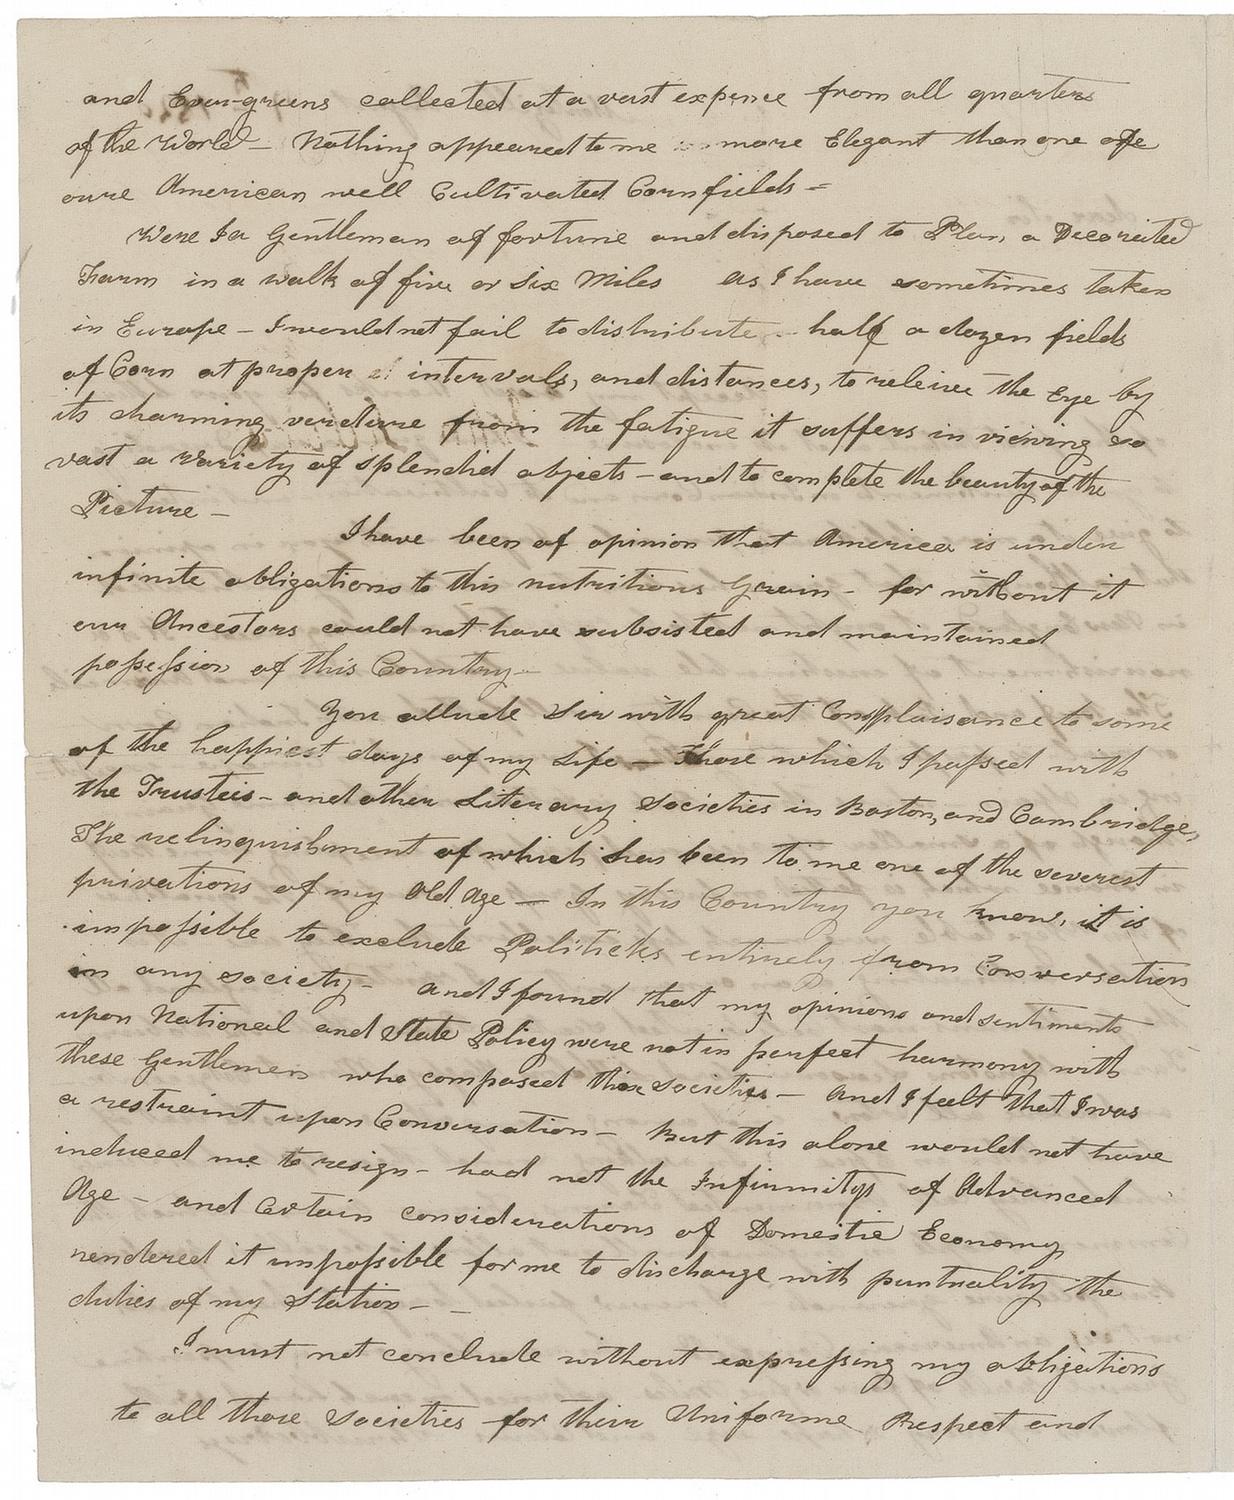 and Ever-greens collected at a vast expence from all quarters
of the World — Nothing appeared to me more Elegant than one of
oure American well Cultivated Cornfields =
Were I a Gentleman of fortune and disposed to Plan a Decorated
Farm in a walk of five or Six Miles as I have sometimes taken
in Europe — I would not fail to distribute half a dozen fields
of Corn at proper intervals, and distances, to releive the Eye by
its charming verdure from the fatigue it suffers in viewing so
vast a Variety of splendid objects — and to complete the beauty of the
Picture —
I have been of opinion that America is under
infinite obligations to this nutritious Grain — for without it
our Ancestors could not have subsisted and maintained
possession of this Country —
You allude Sir with great Complaisance to some
of the happiest days of my Life — Those which I passed with
the Trustees — and other Literary Societies in Boston, and Cambridge,
The relinquishment of which has been to me one of the severest
privations of my Old Age — In this Country you know, it is
impossible to exclude Politicks entirely from Conversation
in any society — and I found that my opinions and sentiments
upon National and State Policy were not in perfect harmony with
these Gentlemen who composed these societies — and I felt that I was
a restraint upon Conversation — But this alone would not have
induced me to resign — had not the Infirmitys of Advanced
Age — and Certain considerations of Domestic Economy
rendered it impossible for me to discharge with puntuality the
duties of my Station —
I must not conclude without expressing my obligations
to all those Societies for their Uniforme Respect and